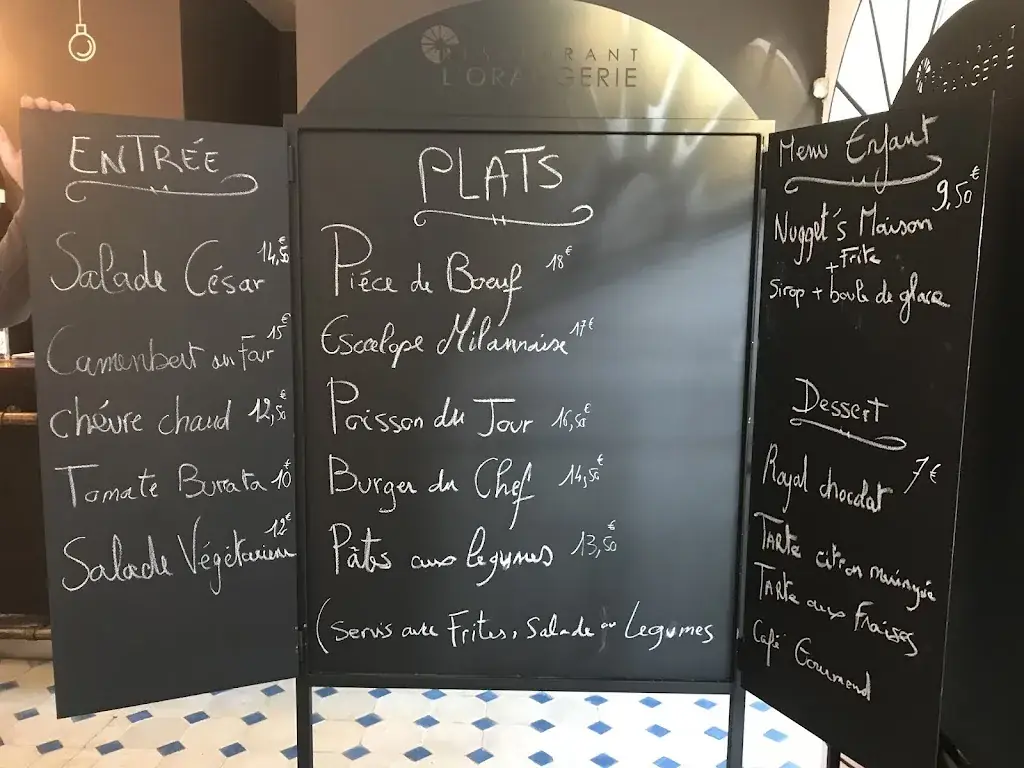 RESTAURANT
L'ORANGERIE
ENTRÉE
Salade César 14,50€
Camembert au Four 15€
chévre chaud 12,50€
Tomate Burata 10€
Salade Végétarienne 12€
PLATS
Piéce de Boeuf 18€
Escalope Milannaise 17€
Poisson du Jour 16,50€
Burger du Chef 14,50€
Pâtes aux legumes 13,50€
(Servis avec Frites, Salade ou Legumes
Menu Enfant
9,50€
Nugget's Maison
+ Frite
Sirop + boule de glace
Dessert
7€
Royal chocolat
TARTE citron meringuée
TARTE aux Fraises
Café Gourmand